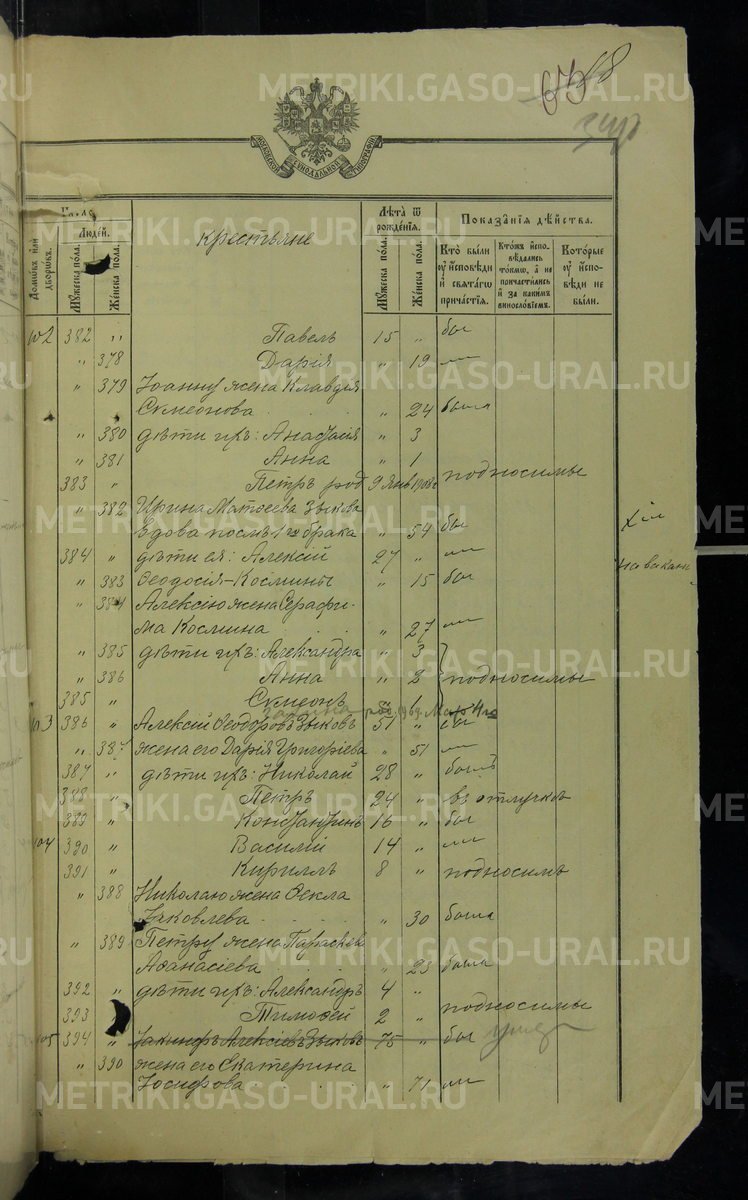 METRIKI.GASO-URAL.RU
638
МОСКОВСКОЙ СУНОДАЛЬНОЙ ТИПОГРАФІИ
Число
Домѡвъ или дворѡвъ.
Людей.
Мꙋжеска пола.
Женска пола.
Крестьяне
Лѣта ѿ рожденїѧ.
Мꙋжеска пола.
Женска пола.
Показанїѧ дѣйства.
Кто были оу исповѣди и свѧтагѡ причастїѧ.
Ктѡ исповѣдались токмѡ, а не причастились и за какимъ винословїемъ.
Которые оу исповѣди не были.
102 382 " Павелъ 15 " былъ
" 378 Дарія " 19 —
" 379 Іоанну жена Клавдія
Сѵмеонова " 24 была
" 380 дѣти ихъ: Анастасія " 3
" 381 Анна " 1
383 " Петръ род. 9 Янв 1908 г подносимы
" 382 Ирина Матѳеева Зыкова
вдова послѣ 1го брака " 54 была
384 " дѣти ея: Алексій 27 " —
" 383 Ѳеодосія - Космины " 15 была
" 384 Алексію жена Серафи-
ма Космина " 27 —
" 385 дѣти ихъ: Александра " 3
" 386 Анна " 2 подносимы
385 " Сѵмеонъ 1
103 386 " Алексій Ѳеодоровъ Зыковъ 51 " былъ
" 387 жена его Дарія Григоріева " 51 —
387 " дѣти ихъ: Николай 28 " былъ
388 " Петръ 24 " въ отлучкѣ
389 " Константинъ 16 " былъ
104 390 " Василій 14 " —
391 " Кириллъ 8 " подносимъ
" 388 Николаю жена Ѳекла
Іаковлева " 30 была
" 389 Петру жена Параскева
Аѳанасіева " 23 была
392 " дѣти ихъ: Александръ 4 "
393 " Тимоѳей 2 " подносимы
105 394 " Іакинфъ Алексіевъ Зыковъ 75 " былъ умер
" 390 жена его Екатерина
Іосифова " 71 —